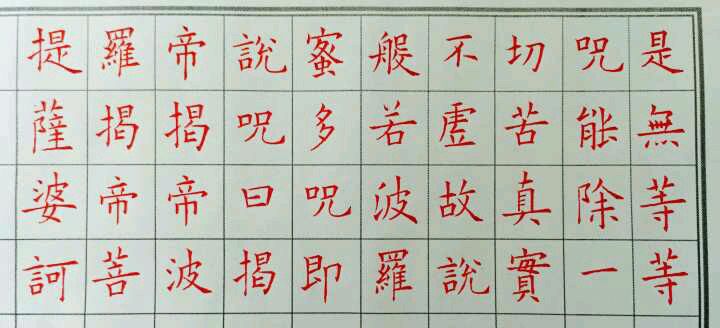 是無等等
呪能除一
切苦真實
不虛故說
般若波羅
蜜多呪即
說呪曰揭
帝揭帝波
羅揭帝菩
提薩婆訶